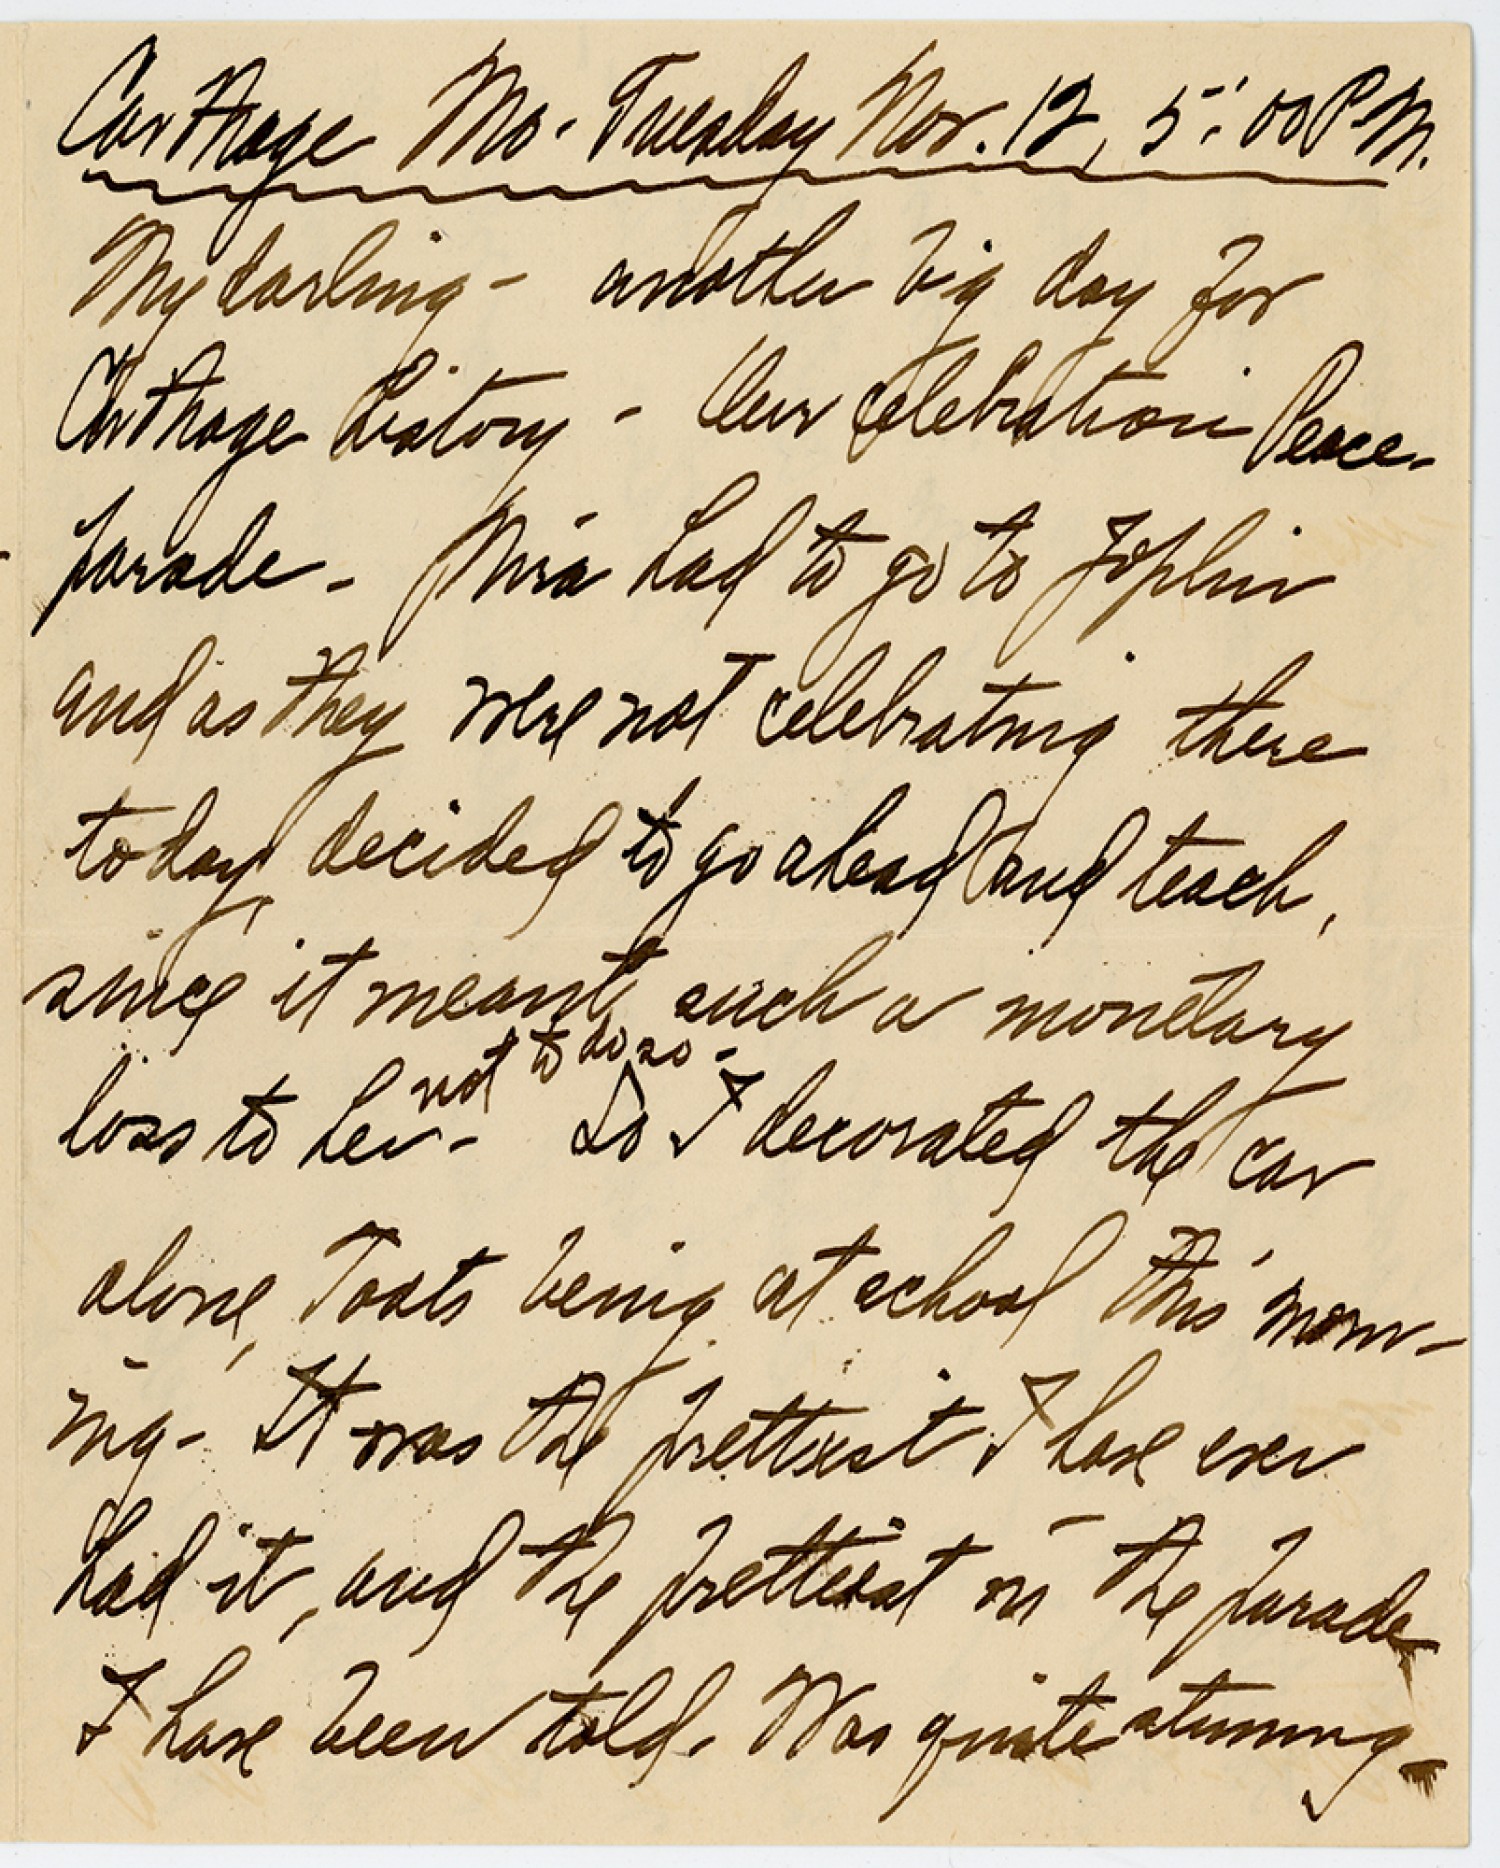 Carthage Mo. Tuesday Nov. 12, 5:00 P.M.
My darling - another big day for
Carthage history - Our celebration Peace-
parade - Mira had to go to Joplin
and as they were not celebrating there
today, decided to go ahead and teach,
since it meant such a monetary
not to do so -
loss to her - So I decorated the car
alone, Toots being at school this morn-
ing - It was the prettiest I have ever
had it, and the prettiest in the parade
I have been told. Was quite stunning -